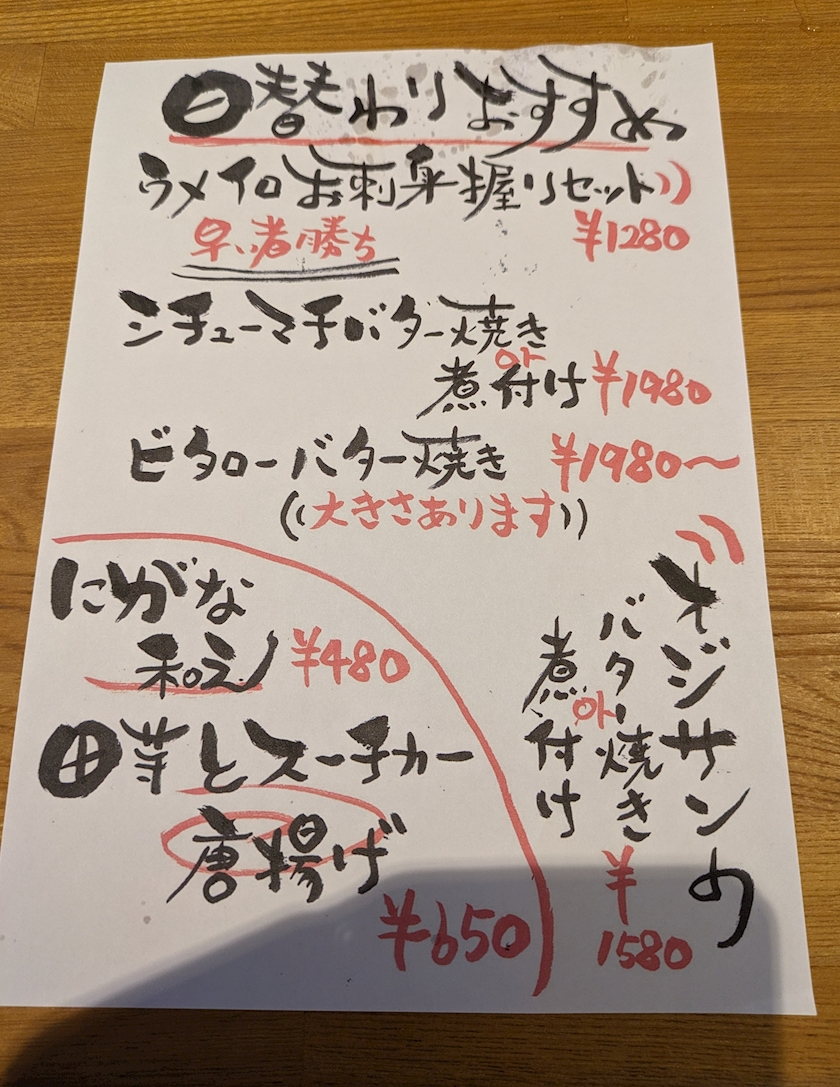 日替わりおすすめ
ウメイロお刺身握りセット
早い者勝ち ¥1280
シチューマチバター焼き
or
煮付け ¥1980
ビタローバター焼き ¥1980〜
((大きさあります))
にがな
和え ¥480
田芋とスーチカー
唐揚げ
¥650
オジサンの
バター焼き
or
煮付け
¥
1580